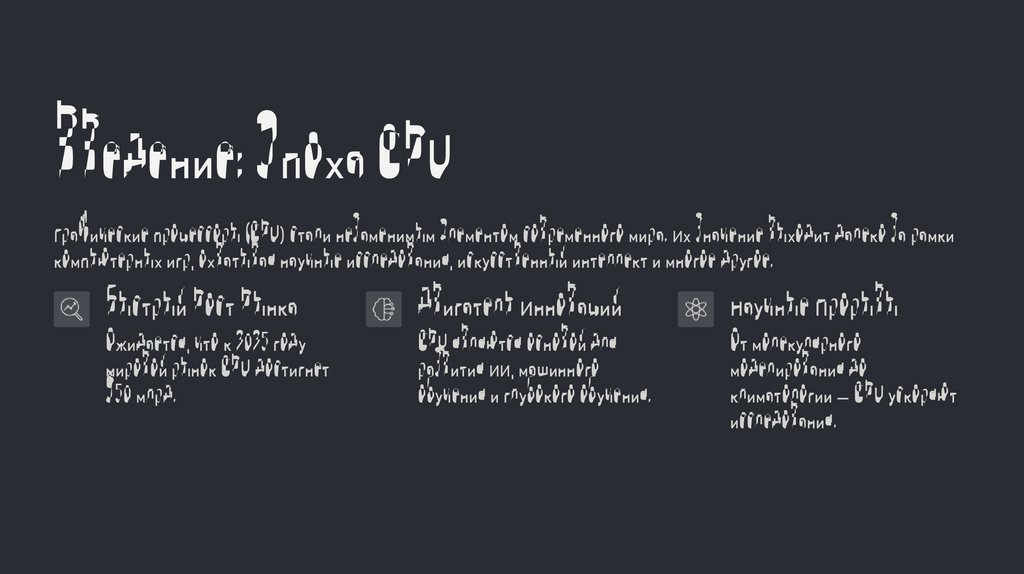 Введение: Эпоха GPU
Графические процессоры (GPU) стали незаменимым элементом современного мира. Их значение выходит далеко за рамки
компьютерных игр, охватывая научные исследования, искусственный интеллект и многое другое.
Быстрый Рост Рынка
Ожидается, что к году
мировой рынок GPU достигнет
млрд.
Двигатель Инноваций
GPU являются основой для
развития ИИ, машинного
обучения и глубокого обучения.
Научные Прорывы
От молекулярного
моделирования до
климатологии — GPU ускоряют
исследования.